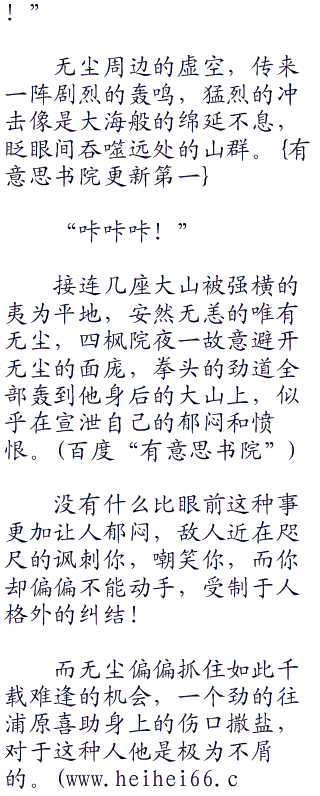 ！”
无尘周边的虚空，传来
一阵剧烈的轰鸣，猛烈的冲
击像是大海般的绵延不息，
眨眼间吞噬远处的山群。{有
意思书院更新第一}
“咔咔咔！”
接连几座大山被强横的
夷为平地，安然无恙的唯有
无尘，四枫院夜一故意避开
无尘的面庞，拳头的劲道全
部轰到他身后的大山上，似
乎在宣泄自己的郁闷和愤
恨。(百度“有意思书院”)
没有什么比眼前这种事
更加让人郁闷，敌人近在咫
尺的讽刺你，嘲笑你，而你
却偏偏不能动手，受制于人
格外的纠结！
而无尘偏偏抓住如此千
载难逢的机会，一个劲的往
浦原喜助身上的伤口撒盐，
对于这种人他是极为不屑
的。(www.heihei66.c